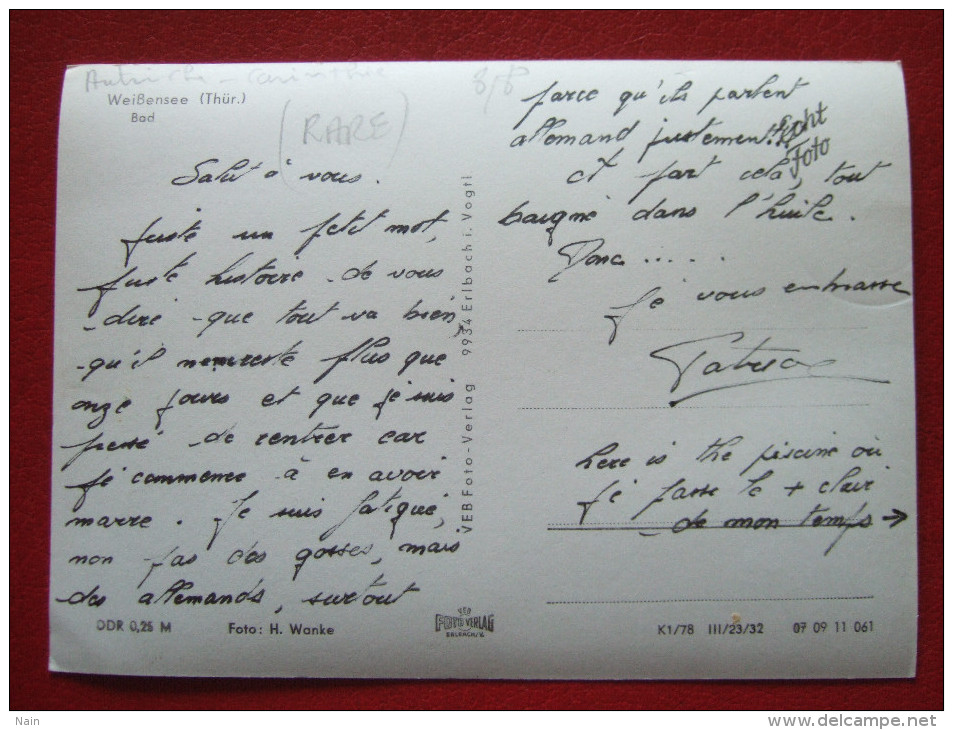 Autriche - Carinthie
8/8
Weißensee (Thür.)
Bad
(RARE)
Salut à vous.
Juste un petit mot,
juste histoire de vous
dire que tout va bien,
qu'il ne reste plus que
onze jours et que je suis
pressé de rentrer car
je commence à en avoir
marre. Je suis fatigué,
non pas des gosses, mais
des allemands, surtout
parce qu'ils parlent
allemand justement!
et part cela, tout
baigne dans l'huile.
Donc .....
Je vous embrasse
here is the piscine où
je passe le + clair
de mon temps →
Echt
Foto
VEB Foto-Verlag 9934 Erlbach i. Vogtl
DDR 0,25 M
Foto: H. Wanke
VEB
FOTO VERLAG
ERLBACH/V.
K1/78 III/23/32 07 09 11 061
Nain
www.delcampe.net